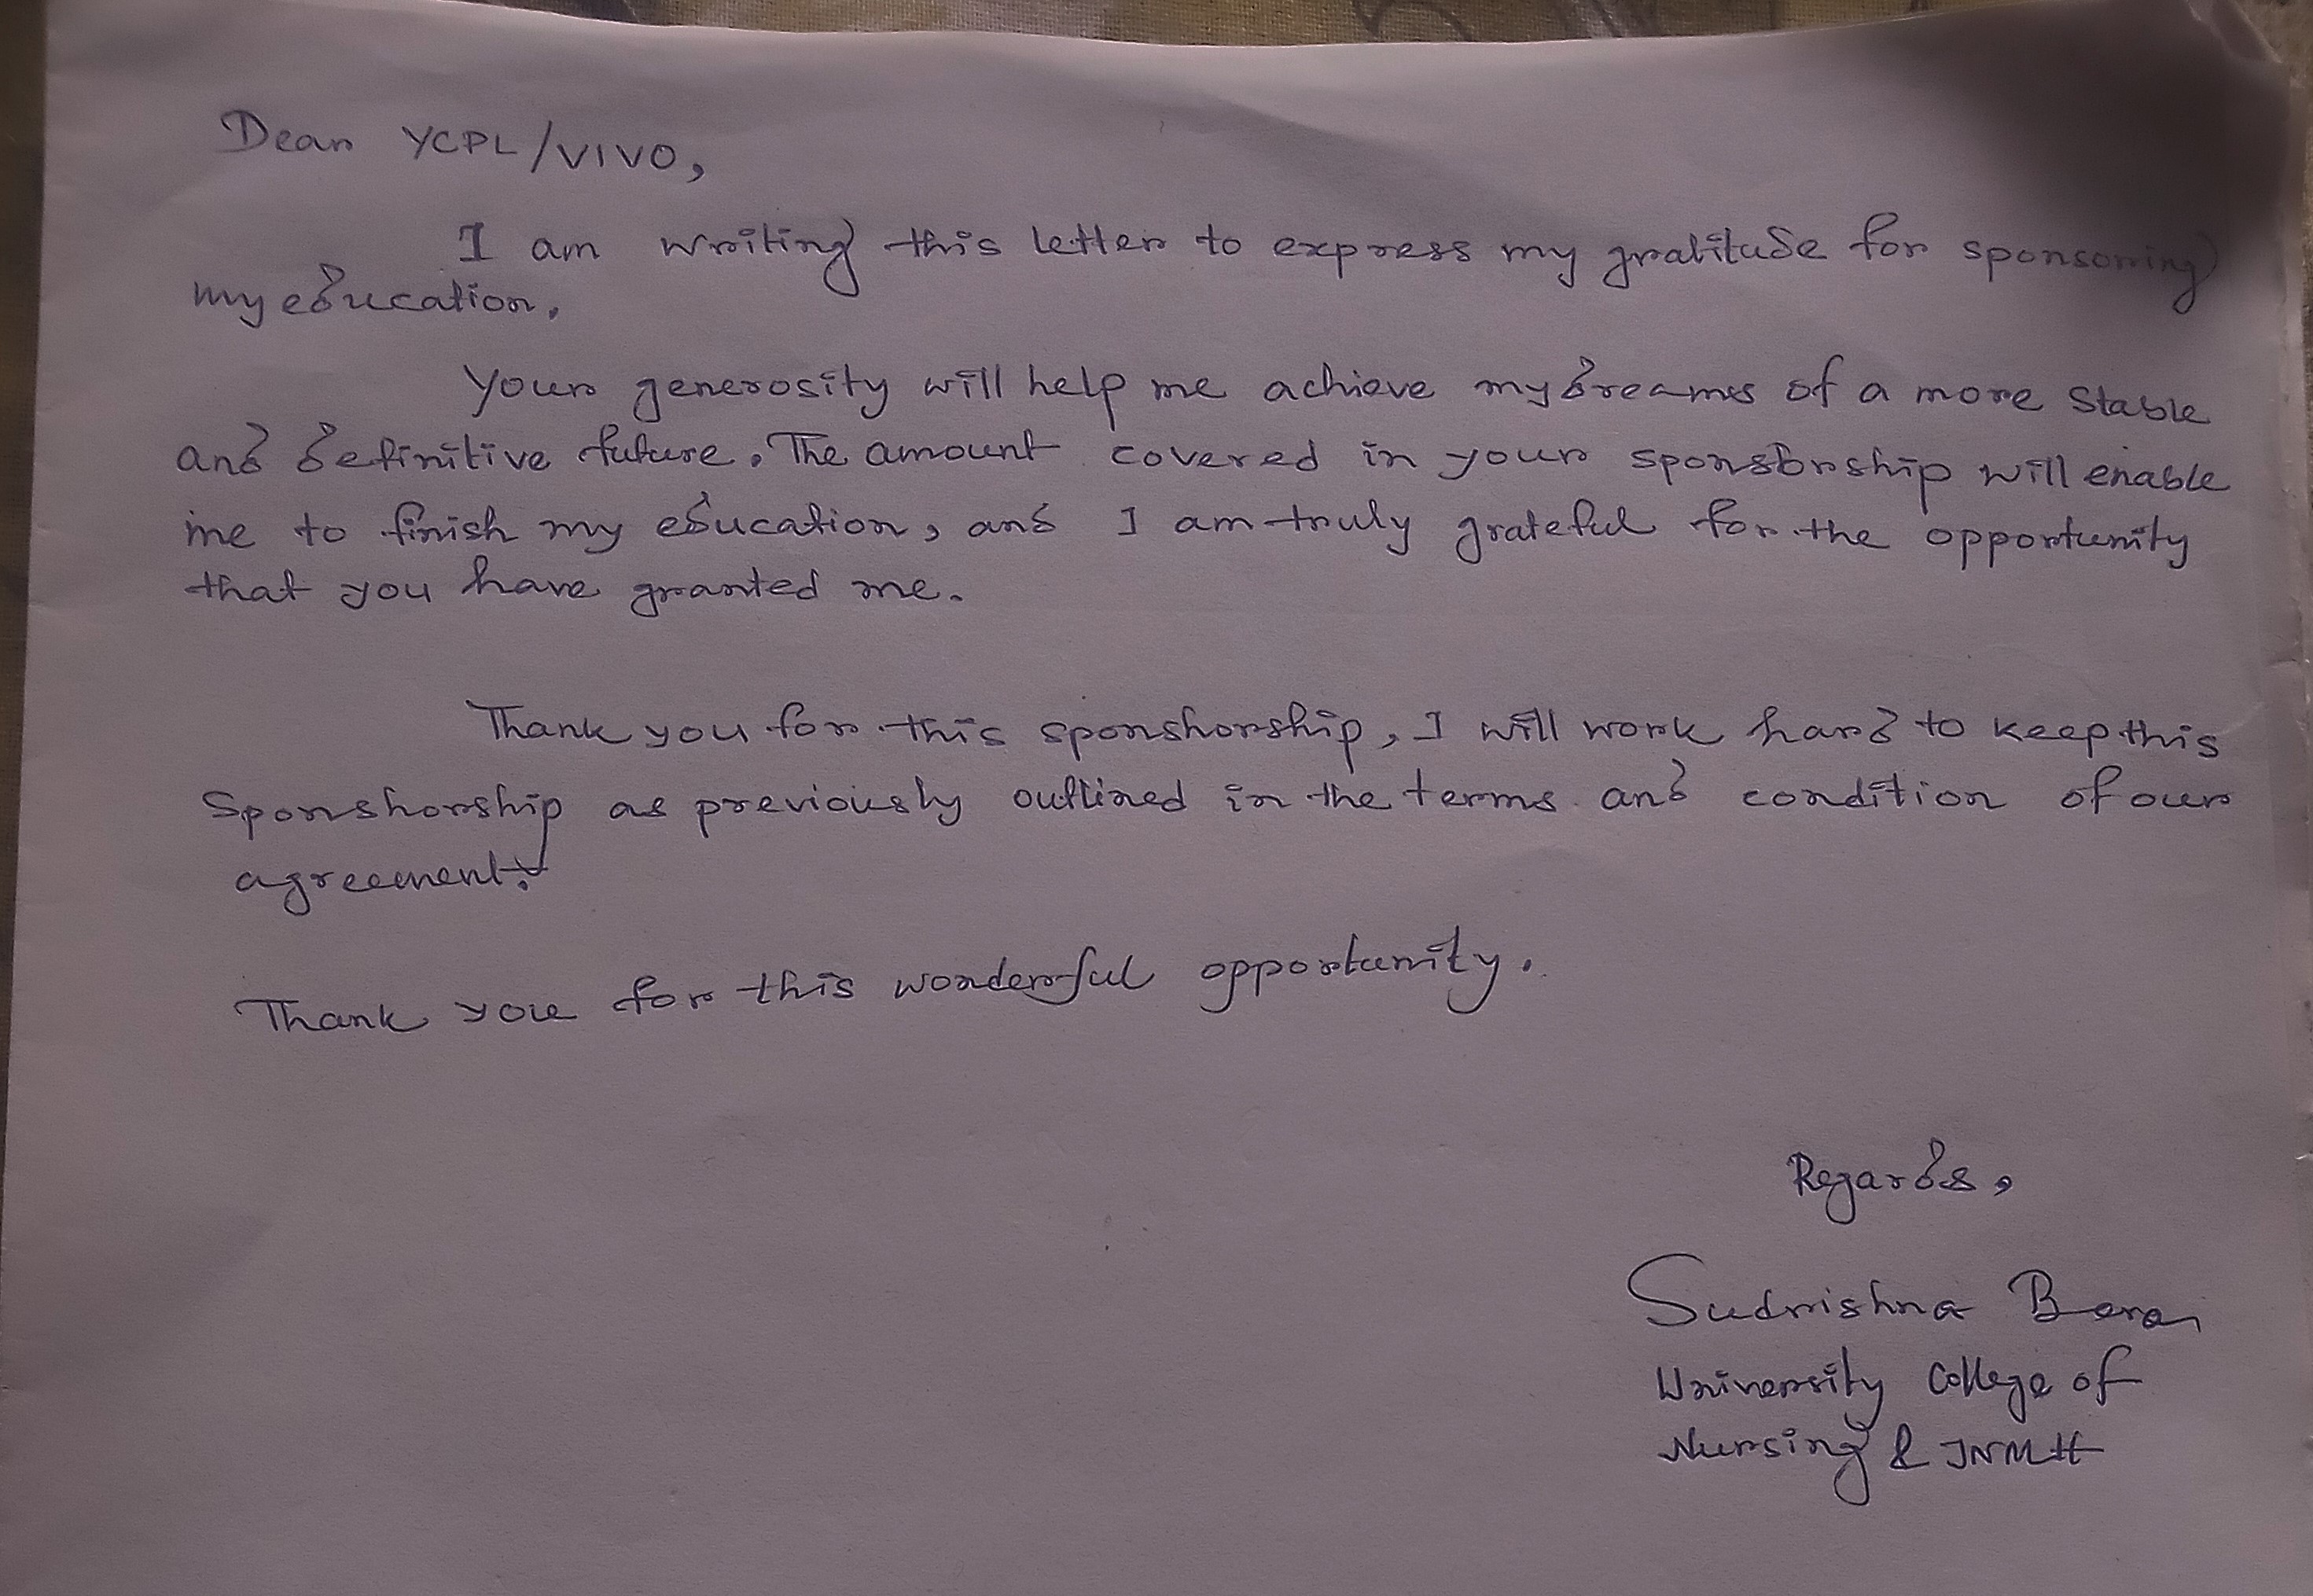 Dear YCPL/VIVO,
I am writing this letter to express my gratitude for sponsorring
my education.
Your generosity will help me achieve my dreames of a more stable
and definitive future. The amount covered in your sponsorship will enable
me to finish my education, and I am truly grateful for the opportunity
that you have granted me.
Thank you for this sponshorship, I will work hard to keep this
Sponshorship as previously outlined in the terms and condition of our
agreement.
Thank you for this wonderful opportunity.
Regards,
Sudrishna Bera
University College of
Nursing & JNMH